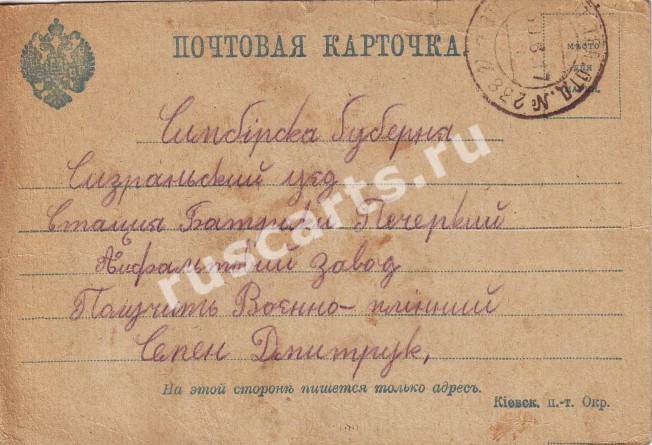 ПОЧТОВАЯ КАРТОЧКА.
МѢСТО
ДЛЯ
№ 238
Симбірска Губерна
Сизраньский уезд
Стация Батраки Печеркий
Асфальтвий завод
Палучить Воєнно-плінний
Семен Дмитрук,
На этой сторонѣ пишется только адресъ.
Кіевск. п.-т. Окр.
ruscarts.ru